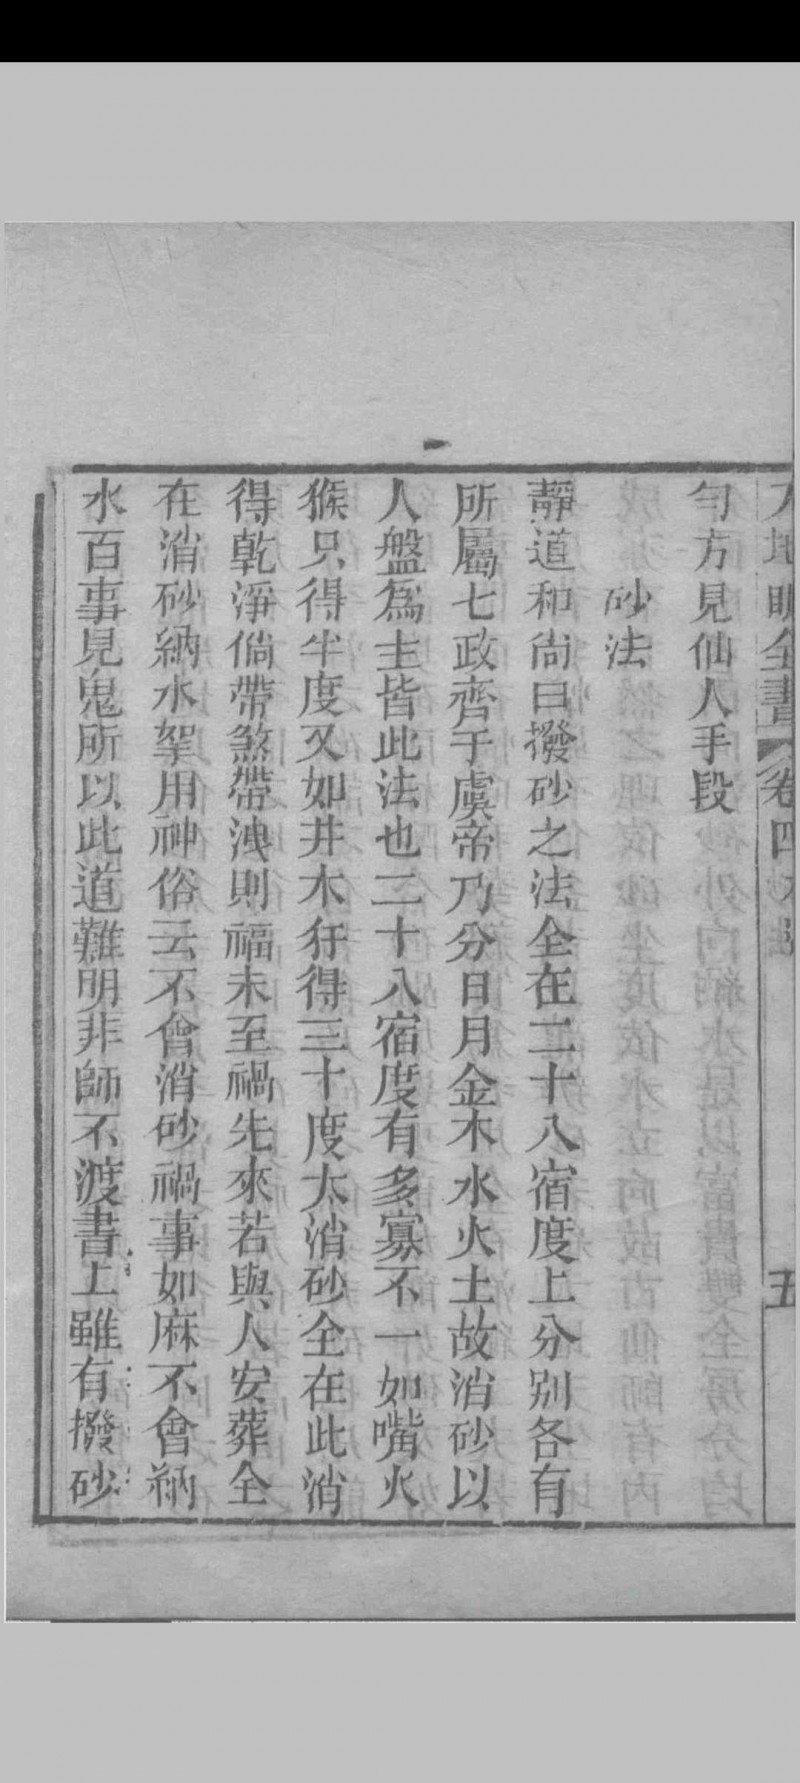 地眼全書 卷四 五
勻方見仙人手段
砂法
靜道和尚曰撥砂之法全在二十八宿度上分別各有
所屬七政齊于虞帝乃分日月金木水火土故消砂以
人盤為主皆此法也二十八宿度有多寡不一如嘴火
猴只得半度又如井木犴得三十度太消砂全在此消
得乾淨倘帶煞帶洩則福未至禍先來若與人安葬全
在消砂納水挐用神俗云不會消砂禍事如麻不會納
水百事見鬼所以此道難明非師不渡書上雖有撥砂